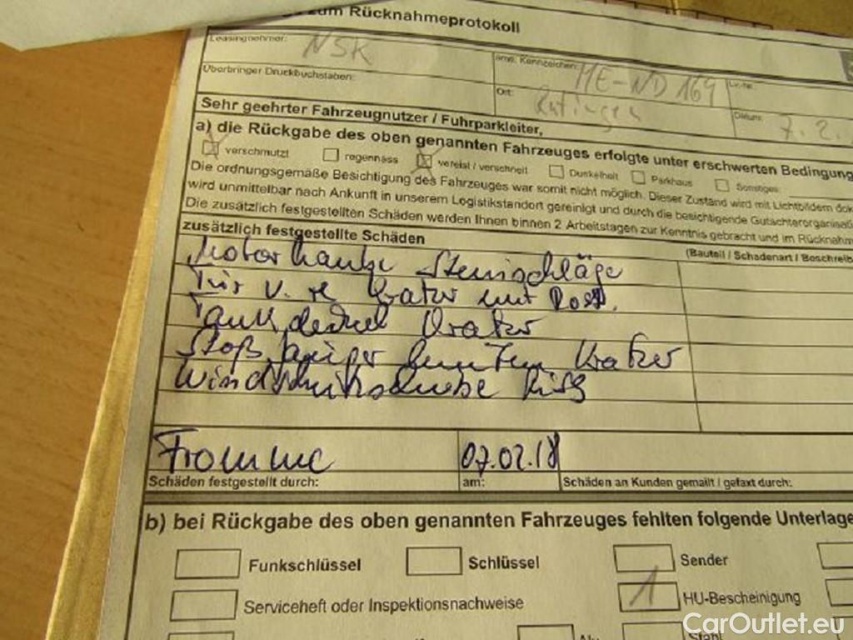 zum Rücknahmeprotokoll
Leasingnehmer: NSK
amtl. Kennzeichen: ME-ND 164
Überbringer Druckbuchstaben:
Ort: Ratingen
Datum: 7.2.
Sehr geehrter Fahrzeugnutzer / Fuhrparkleiter,
a) die Rückgabe des oben genannten Fahrzeuges erfolgte unter erschwerten Bedingung
verschmutzt regennass vereist / verschneit Dunkelheit Parkhaus Sonstiges:
Die ordnungsgemäße Besichtigung des Fahrzeuges war somit nicht möglich. Dieser Zustand wird mit Lichtbildern dok
wird unmittelbar nach Ankunft in unserem Logistikstandort gereinigt und durch die besichtigende Gutachterorganisati
Die zusätzlich festgestellten Schäden werden Ihnen binnen 2 Arbeitstagen zur Kenntnis gebracht und im Rücknahm
zusätzlich festgestellte Schäden
(Bauteil / Schadenart / Beschreib
Motorhaube Steinschläge
Tür v. re Kratzer mit Rost.
Tankdeckel Kratzer
Stoßfänger hinten Kratzer
Windschutzscheibe Riss
Fromme 07.02.18
Schäden festgestellt durch: am: Schäden an Kunden gemailt / gefaxt durch:
b) bei Rückgabe des oben genannten Fahrzeuges fehlten folgende Unterlage
Funkschlüssel Schlüssel Sender
Serviceheft oder Inspektionsnachweise 1 HU-Bescheinigung
CarOutlet.eu